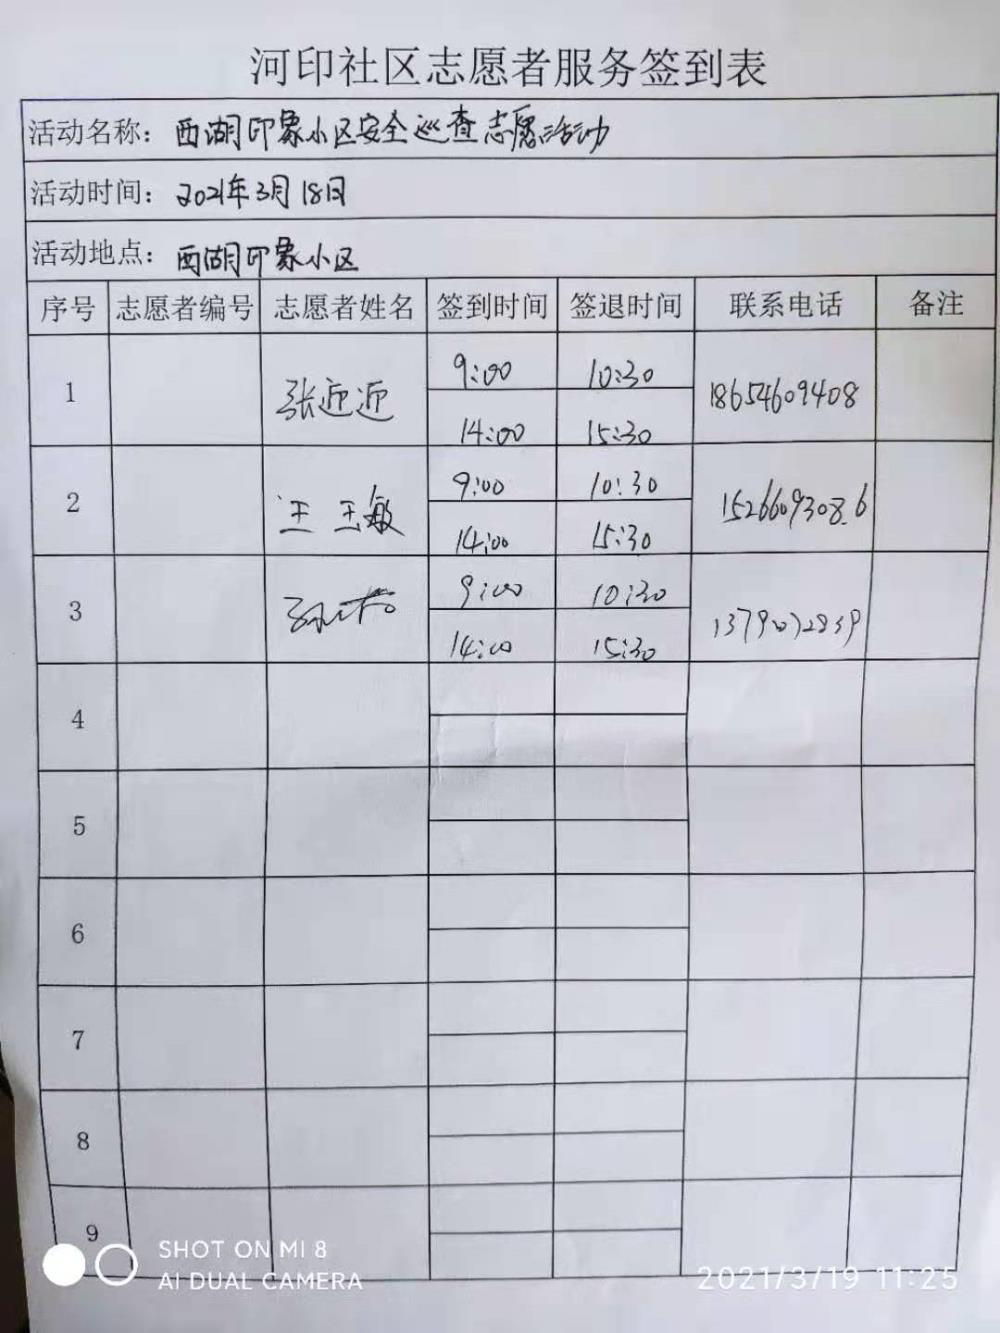 河印社区志愿者服务签到表
活动名称：西湖印象小区安全巡查志愿活动
活动时间：2021年3月18日
活动地点：西湖印象小区
序号 志愿者编号 志愿者姓名 签到时间 签退时间 联系电话 备注
1 张迎迎 9:00 10:30 18654609408
14:00 15:30
2 王玉敏 9:00 10:30 15266093086
14:00 15:30
3 9:00 10:30
14:00 15:30
4
5
6
7
8
9
SHOT ON MI 8
AI DUAL CAMERA
2021/3/19 11:25